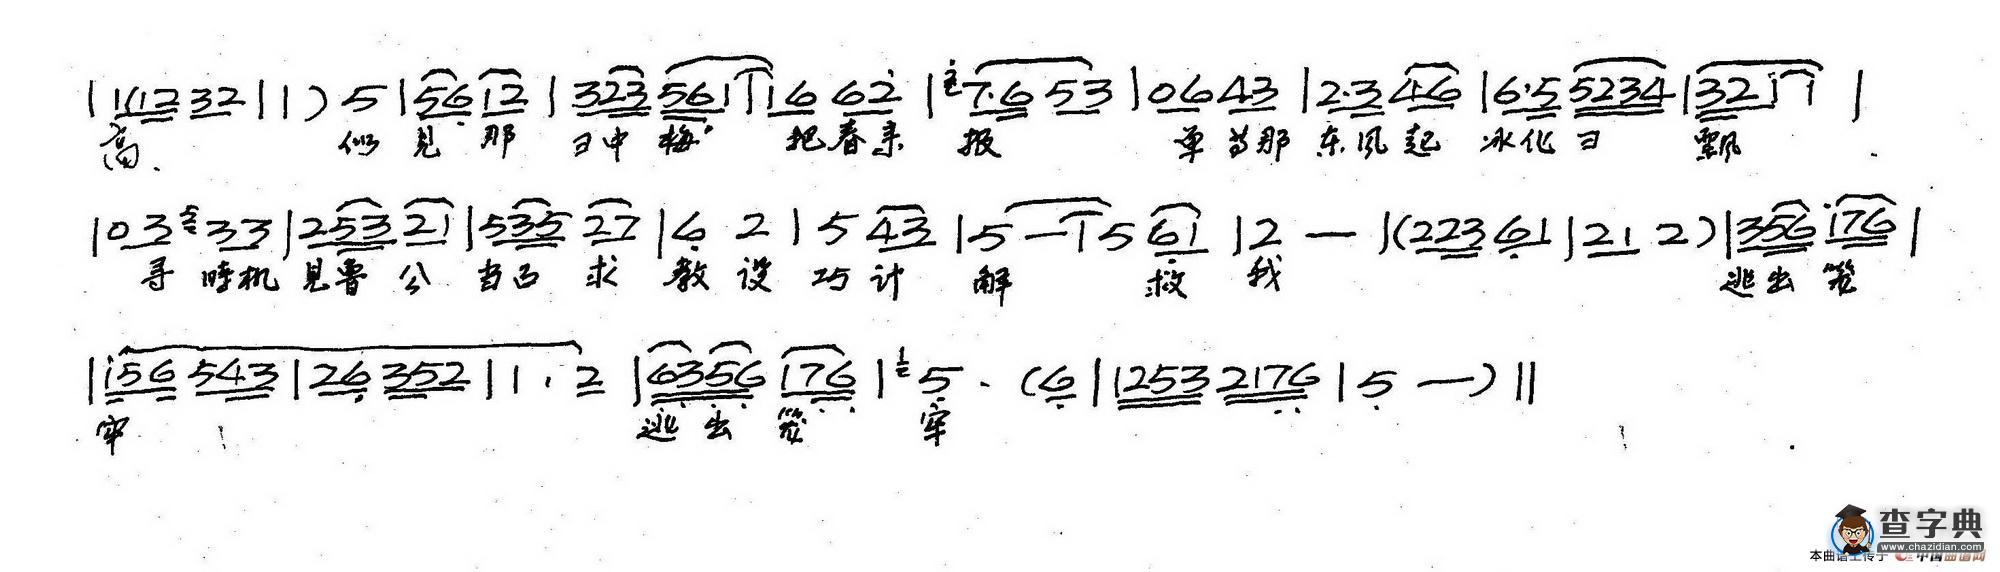 | 1112 32 | 1 ) 5 | 56 12 | 323 561 | 16 62 | 7.6 53 | 06 43 | 2.3 46 | 6.5 5234 | 32 1 1 |
高 似 見 那 彐 中 梅 把 春 来 报 单 等 那 东 风 起 冰 化 彐 飘
| 0 3 33 | 253 21 | 535 27 | 6 2 | 5 43 | 5 — | 5 61 | 2 — | (223 61 | 21 2) | 356 176 |
寻 時机 見鲁 公 当面 求 教 设 巧 计 解 救 我 逃出 笼
| 156 543 | 26 352 | 1 . 2 | 6356 176 | 5 . (6 | 1253 2176 | 5 —) ||
牢 逃 出 笼 牢
查字典
www.chazidian.com
本曲谱上传于 中国曲谱网